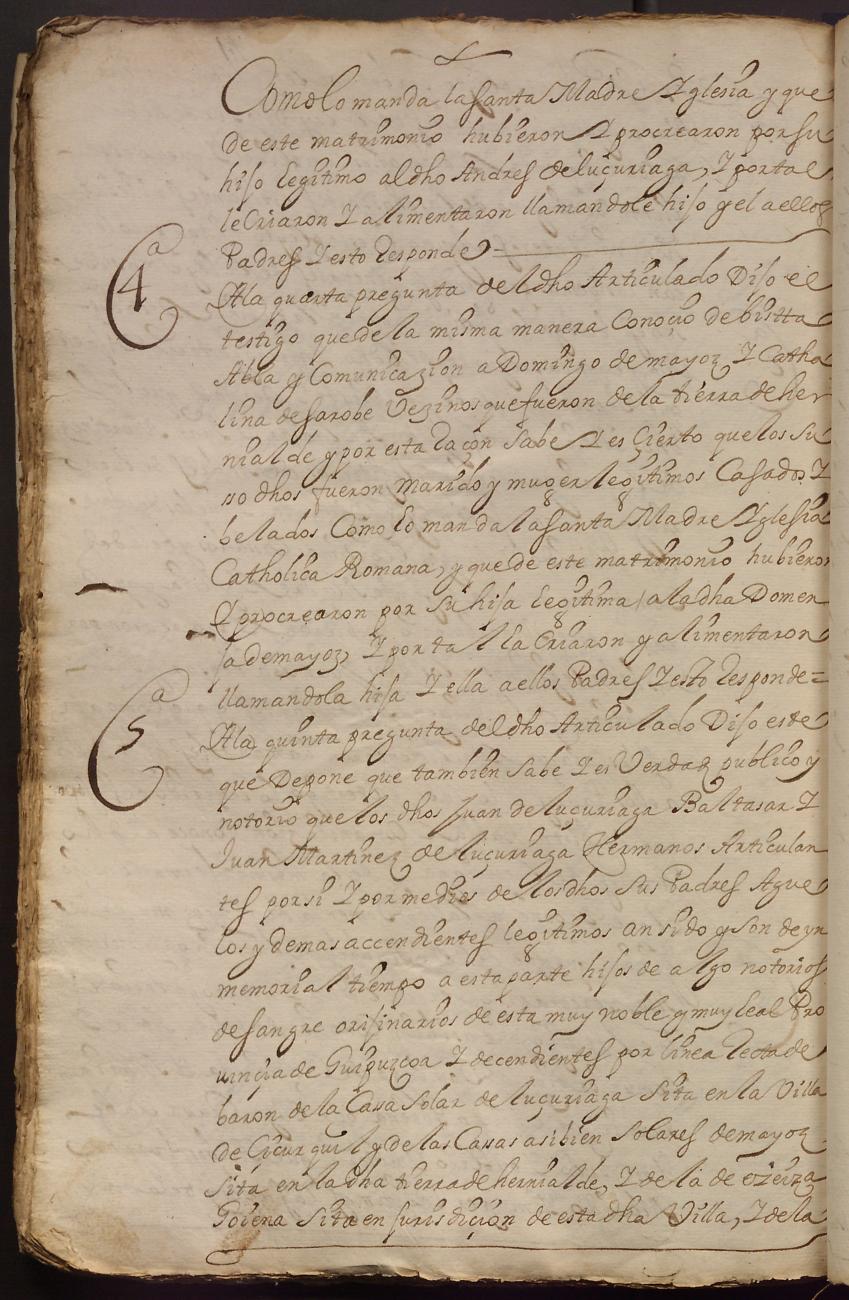 Como lo manda la santa Madre Yglesia y que
de este matrimonio hubieron Y procrearon por su
hijo legitimo al dho Andres de luçuriaga, Y por tal
le Criaron Y alimentaron llamandole hijo y el a ellos
4ª
Padres Y esto Responde
Ala quarta pregunta del dho Articulado Dijo el
testigo que de la misma manera Conoçio de bistta
Abla y Comunicazion a Domingo de mayoz Y Catha
lina de sarobe Vezinos que fueron de la tierra de her
nialde y por esta Raçon Sabe Y es Çierto que los su
so dhos fueron marido y muger legitimos Casados Y
belados Como lo manda la santa Madre Yglesia
Catholica Romana, y que de este matrimonio hubieron
Y procrearon por su hija legitima a la dha Domen
ja de mayoz, Y por tal la Criaron y alimentaron
llamandola hija Y ella a ellos Padres Y esto Responde=
5ª
Ala quinta pregunta del dho Articulado Dijo este
que Depone que tambien Sabe Y es Verdad publico y
notorio que los dhos Juan de luçuriaga Baltasar Y
Juan Martinez de luçuriaga Hermanos Articulan
tes por si Y por medio de los dhos sus Padres Ague
los y demas accendientes legitimos an sido y son de yn
memorial tiempo a esta parte hijos de algo notorios
de sangre orijinarios de esta muy noble y muy leal Pro
uinçia de Guipuzcoa Y decendientes por linea Recta de
baron de la Cassa Solar de luçuriaga Sita en la Villa
de Çiçurquil y de las Cassas asi bien Solares de mayoz
Sita en la dha tierra de hernialde, Y de la de eizeiza
Goiena Sita en jurisdiçion de esta dha Villa, Y de la